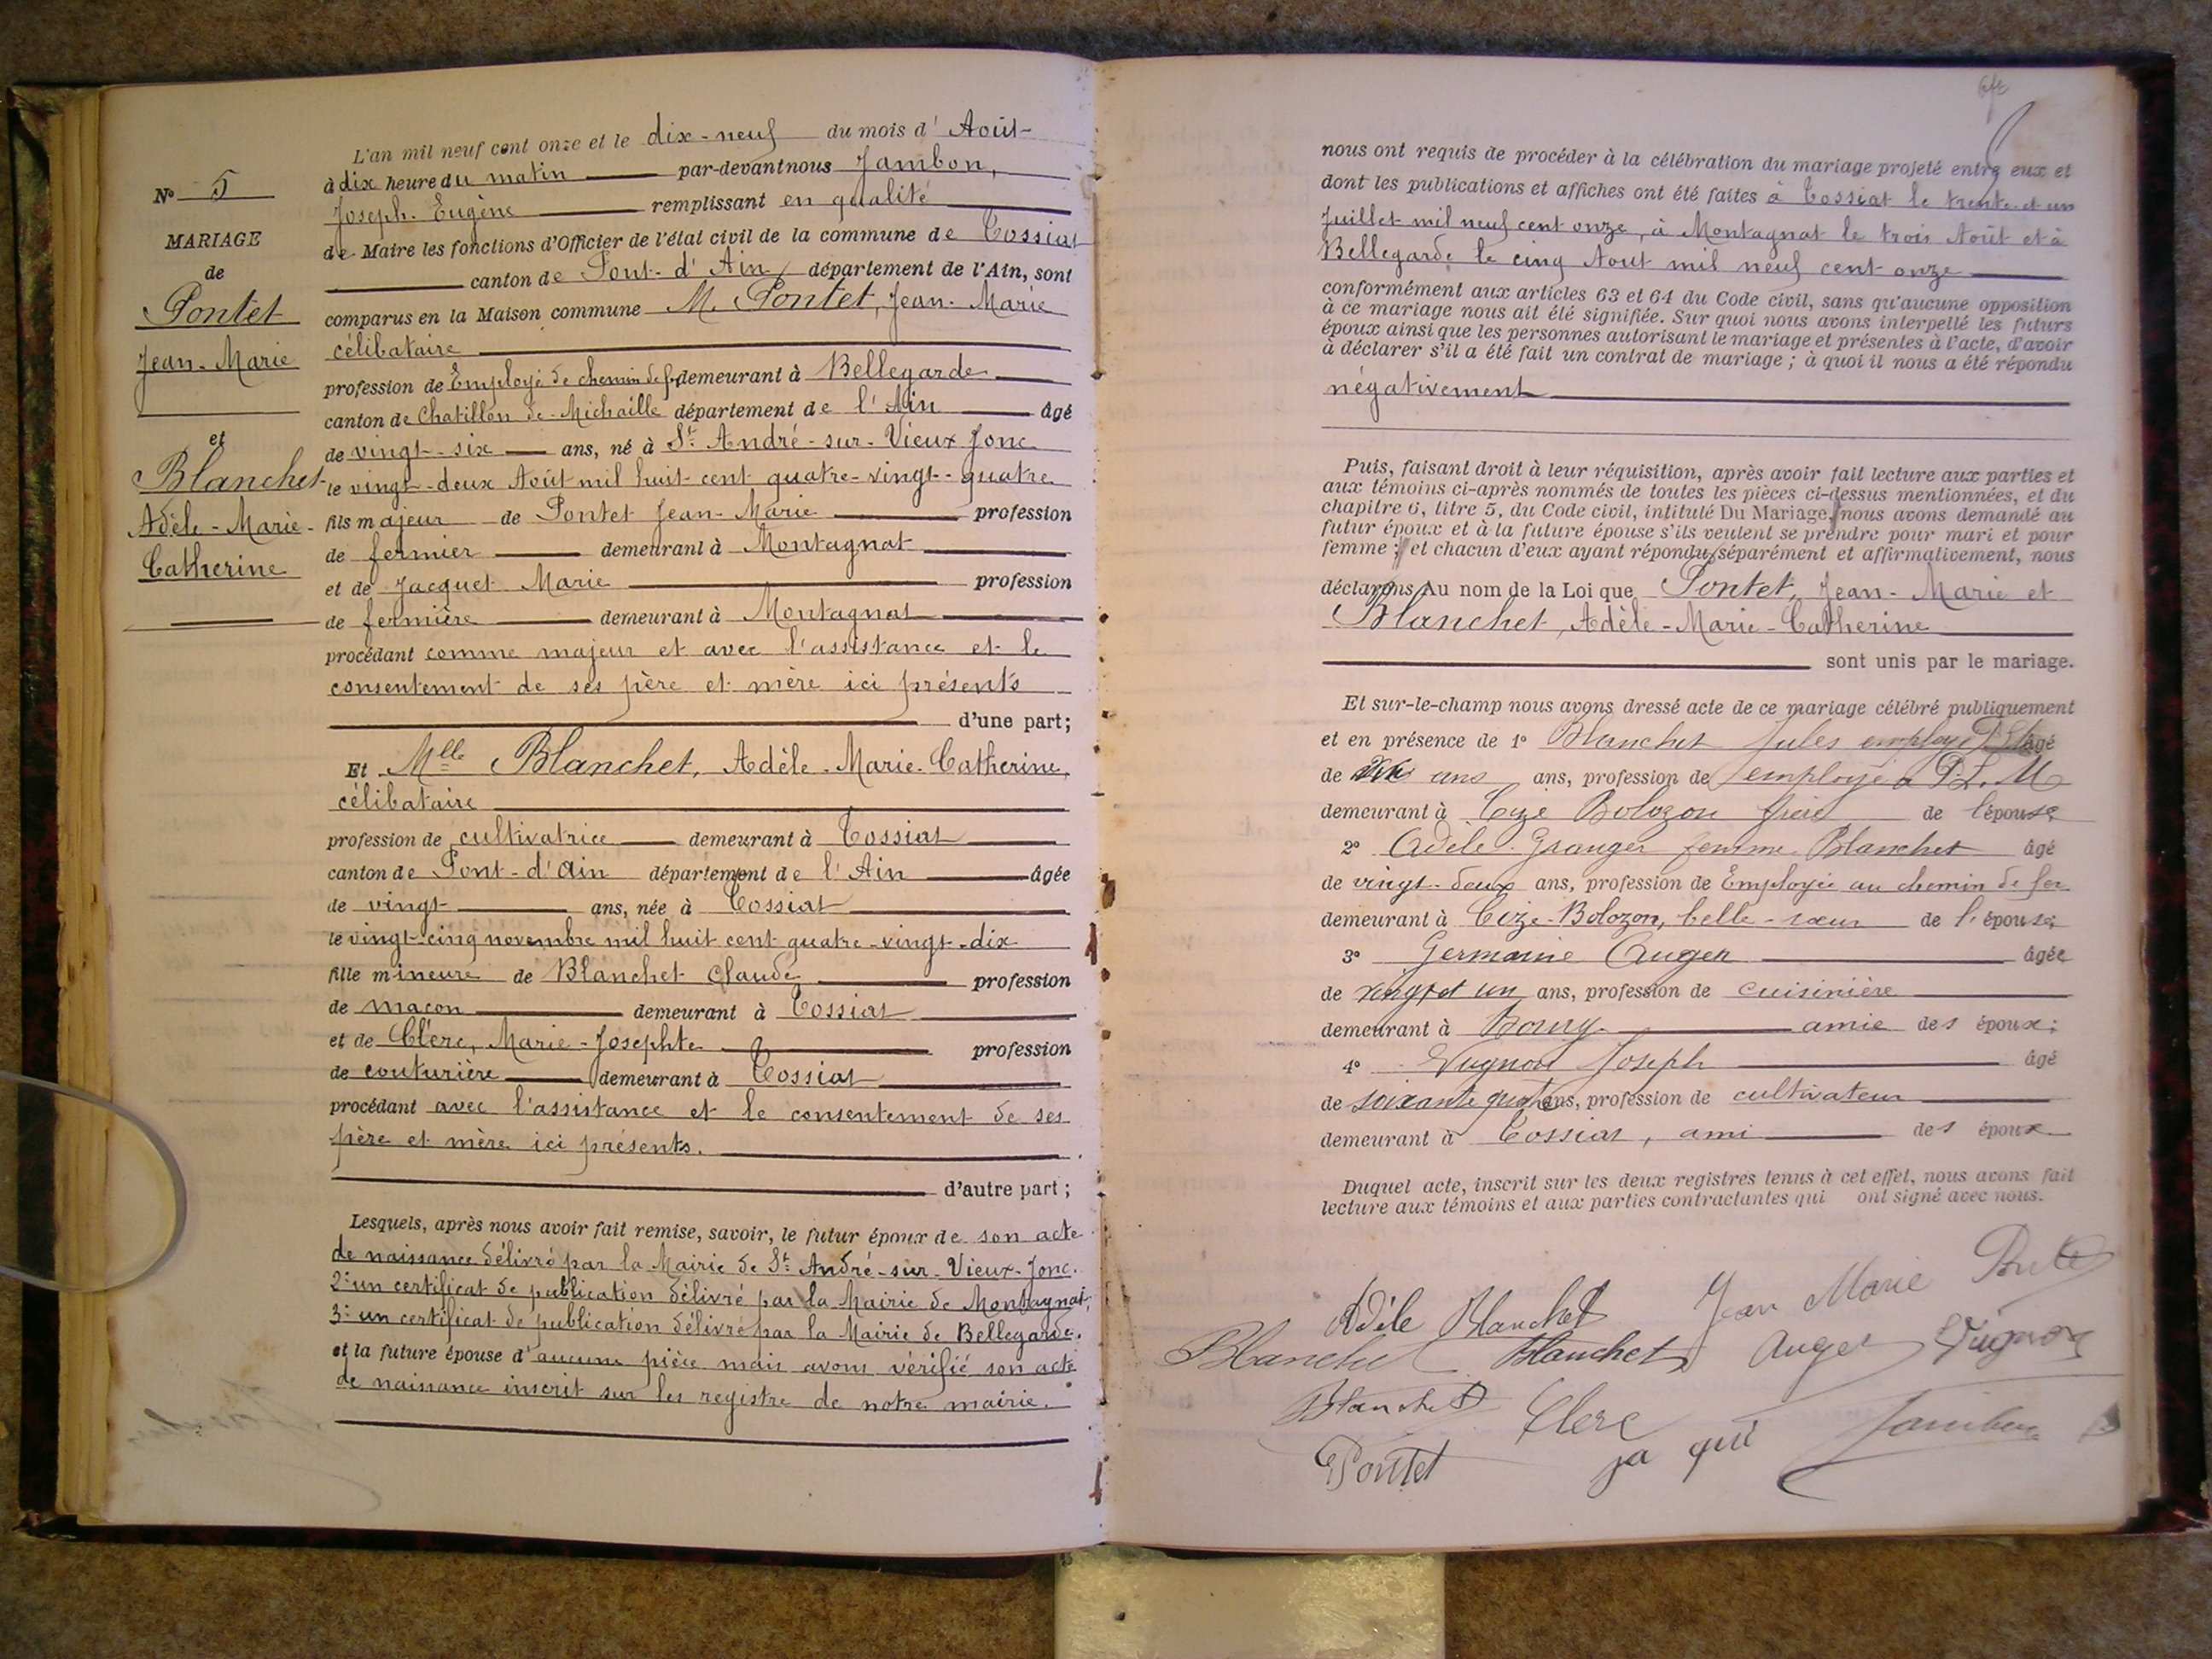 N° 5
MARIAGE
de
Pontet
Jean-Marie
et
Blanchet
Adèle-Marie-
Catherine
L'an mil neuf cent onze et le dix-neuf du mois d'Août
à dix heure du matin par-devant nous Jambon,
Joseph-Eugène remplissant en qualité
de Maire les fonctions d'Officier de l'état civil de la commune de Tossiat
canton de Pont-d'Ain, département de l'Ain, sont
comparus en la Maison commune M. Pontet, Jean-Marie
célibataire
profession de Employé de chemin de fer demeurant à Bellegarde
canton de Chatillon de Michaille département de l'Ain âgé
de vingt-six ans, né à St André-sur-Vieux Jonc
le vingt-deux Août mil huit cent quatre-vingt-quatre
fils majeur de Pontet Jean-Marie profession
de fermier demeurant à Montagnat
et de Jacquet Marie profession
de fermière demeurant à Montagnat
procédant comme majeur et avec l'assistance et le
consentement de ses père et mère ici présents
d'une part;
Et Mlle Blanchet, Adèle-Marie-Catherine,
célibataire
profession de cultivatrice demeurant à Tossiat
canton de Pont-d'Ain département de l'Ain âgée
de vingt ans, née à Tossiat
le vingt-cinq novembre mil huit cent quatre-vingt-dix
fille mineure de Blanchet Claude profession
de maçon demeurant à Tossiat
et de Clerc, Marie-Josephte profession
de couturière demeurant à Tossiat
procédant avec l'assistance et le consentement de ses
père et mère ici présents.
d'autre part;
Lesquels, après nous avoir fait remise, savoir, le futur époux de son acte
de naissance délivré par la Mairie de St André-sur-Vieux-Jonc.
2° un certificat de publication délivré par la Mairie de Montagnat,
3° un certificat de publication délivré par la Mairie de Bellegarde.
et la future épouse d'aucune pièce mais avons vérifié son acte
de naissance inscrit sur les registre de notre mairie.
nous ont requis de procéder à la célébration du mariage projeté entre eux et
dont les publications et affiches ont été faites à Tossiat le trente et un
Juillet mil neuf cent onze, à Montagnat le trois Août et à
Bellegarde le cinq Aout mil neuf cent onze
conformément aux articles 63 et 64 du Code civil, sans qu'aucune opposition
à ce mariage nous ait été signifiée. Sur quoi nous avons interpellé les futurs
époux ainsi que les personnes autorisant le mariage et présentes à l'acte, d'avoir
à déclarer s'il a été fait un contrat de mariage; à quoi il nous a été répondu
négativement
Puis, faisant droit à leur réquisition, après avoir fait lecture aux parties et
aux témoins ci-après nommés de toutes les pièces ci-dessus mentionnées, et du
chapitre 6, titre 5, du Code civil, intitulé Du Mariage, nous avons demandé au
futur époux et à la future épouse s'ils veulent se prendre pour mari et pour
femme; et chacun d'eux ayant répondu séparément et affirmativement, nous
déclarons Au nom de la Loi que Pontet, Jean-Marie et
Blanchet, Adèle-Marie-Catherine
sont unis par le mariage.
Et sur-le-champ nous avons dressé acte de ce mariage célébré publiquement
et en présence de 1° Blanchet Jules employé âgé
de ans ans, profession de employé à P.L.M
demeurant à Cize Bolozon frère de l'épouse
2° Adèle Granger femme Blanchet âgé
de vingt-deux ans, profession de Employée au chemin de fer
demeurant à Cize-Bolozon, belle-sœur de l'épouse;
3° Germaine Auger âgée
de vingt et un ans, profession de cuisinière
demeurant à Bourg amie des époux;
4° Vugnon Joseph âgé
de soixante quatre ans, profession de cultivateur
demeurant à Tossiat, ami des époux
Duquel acte, inscrit sur les deux registres tenus à cet effet, nous avons fait
lecture aux témoins et aux parties contractantes qui ont signé avec nous.
Adèle Blanchet Jean Marie Pontet
Blanchet Blanchet Auger Vugnon
Blanchet Clerc Jambon
Pontet ja qui